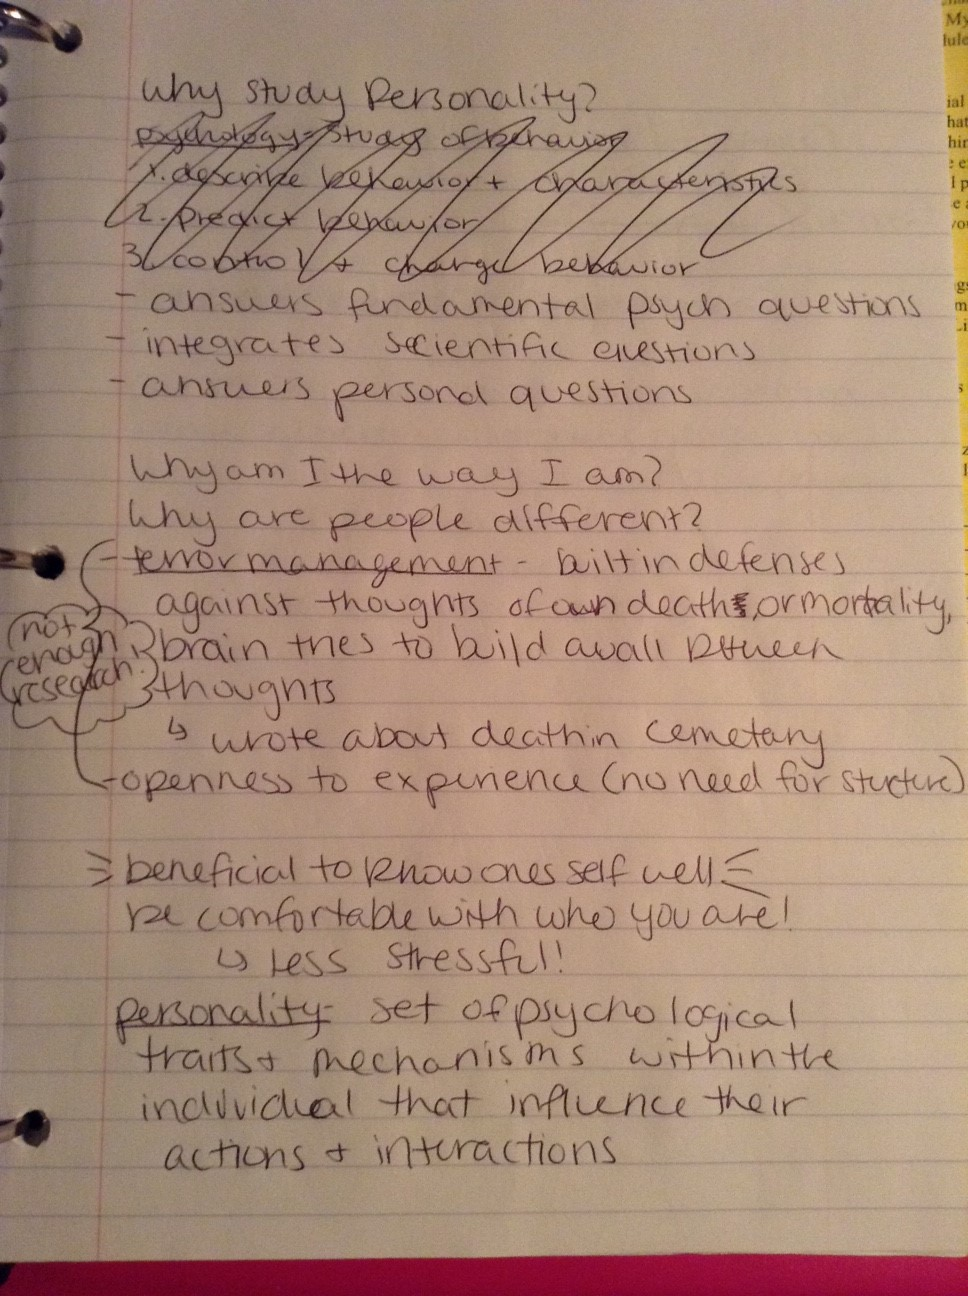 Why study Personality?
psychology=study of behavior
1. describe behavior + characteristics
2. predict behavior
3. control + change behavior
- answers fundamental psych questions
- integrates scientific questions
- answers personal questions
Why am I the way I am?
Why are people different?
- terror management - built in defenses
against thoughts of own death, or mortality,
brain tries to build a wall between
thoughts
↳ wrote about death in cemetary
- openness to experience (no need for structure)
not
enough
research
beneficial to know ones self well
be comfortable with who you are!
↳ less stressful!
personality- set of psychological
traits + mechanisms within the
individual that influence their
actions + interactions
My